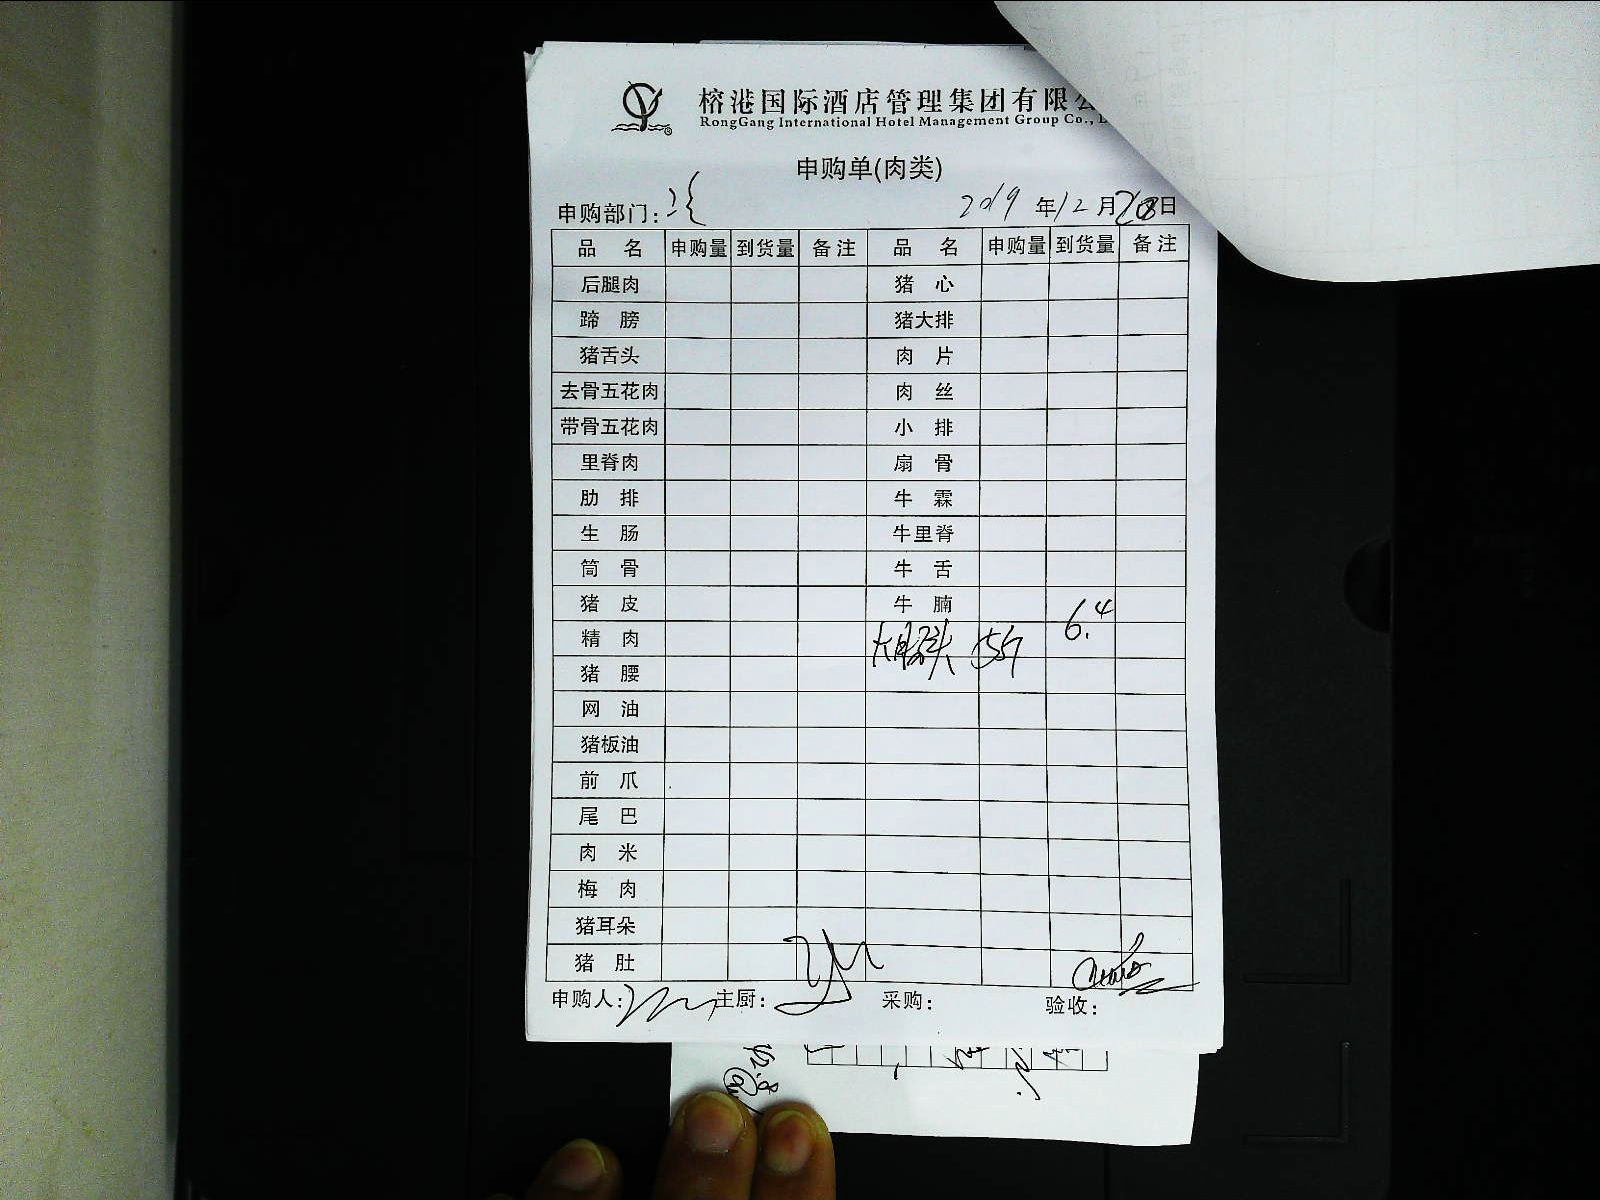 榕港国际酒店管理集团有限公
RongGang International Hotel Management Group Co.,
申购单(肉类)
申购部门：
2019 年 12 月 28 日
品 名 申购量 到货量 备注 品 名 申购量 到货量 备注
后腿肉 猪 心
蹄 膀 猪大排
猪舌头 肉 片
去骨五花肉 肉 丝
带骨五花肉 小 排
里脊肉 扇 骨
肋 排 牛 霖
生 肠 牛里脊
筒 骨 牛 舌
猪 皮 牛 腩
精 肉 5斤 6.4
猪 腰
网 油
猪板油
前 爪
尾 巴
肉 米
梅 肉
猪耳朵
猪 肚
申购人： 主厨： 采购： 验收：